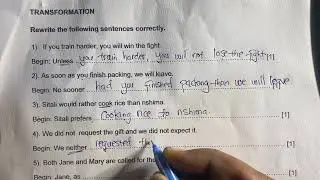 TRANSFORMATION
Rewrite the following sentences correctly.
1) If you train harder, you will win the fight.
Begin: Unless you train harder, you will not lose the fight. [1]
2) As soon as you finish packing, we will leave.
Begin: No sooner had you finished packing than we will leave
3) Sitali would rather cook rice than nshima.
Begin: Sitali prefers cooking rice to nshima. [1]
4) We did not request the gift and we did not expect it.
Begin: We neither requested the
5) Both Jane and Mary are called for the
Begin: Jane, as [1]